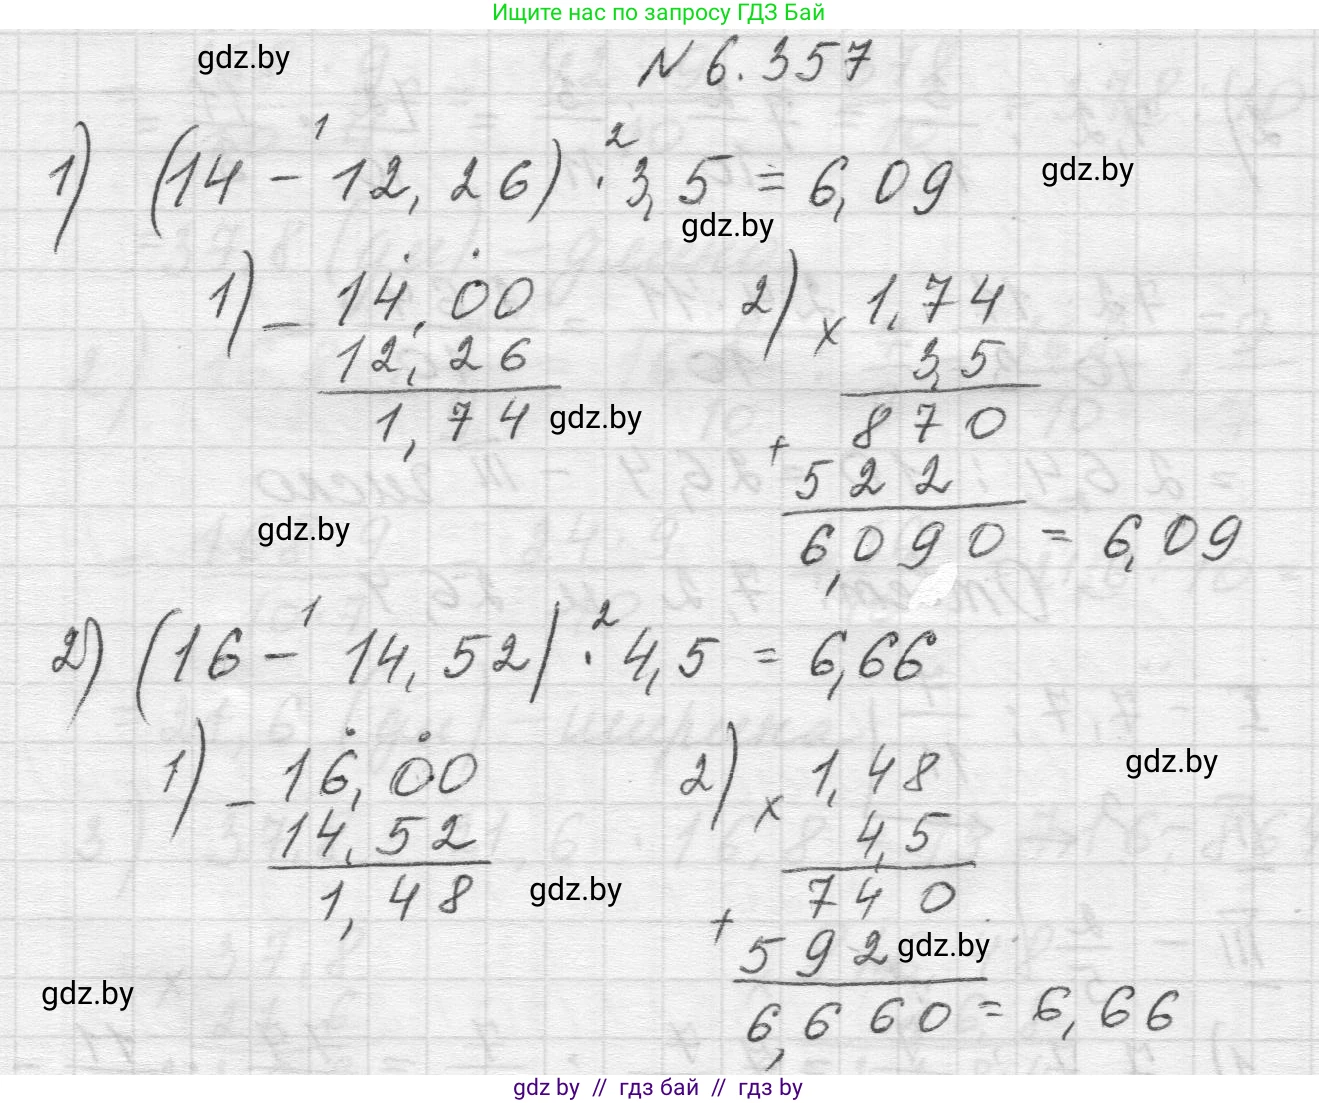 Ищите нас по запросу ГДЗ Бай
gdz.by
N 6.357
1) (14 - 12,26) · 3,5 = 6,09
1 2
gdz.by
gdz.by
1) - 14,00
12,26
1,74
gdz.by
2) x 1,74
3,5
870
+ 522
6,090 = 6,09
gdz.by
2) (16 - 14,52) · 4,5 = 6,66
1 2
1) - 16,00
14,52
1,48
gdz.by
2) x 1,48
4,5
740
+ 592
6,660 = 6,66
gdz.by
gdz.by
gdz.by
gdz by // гдз бай // гдз by